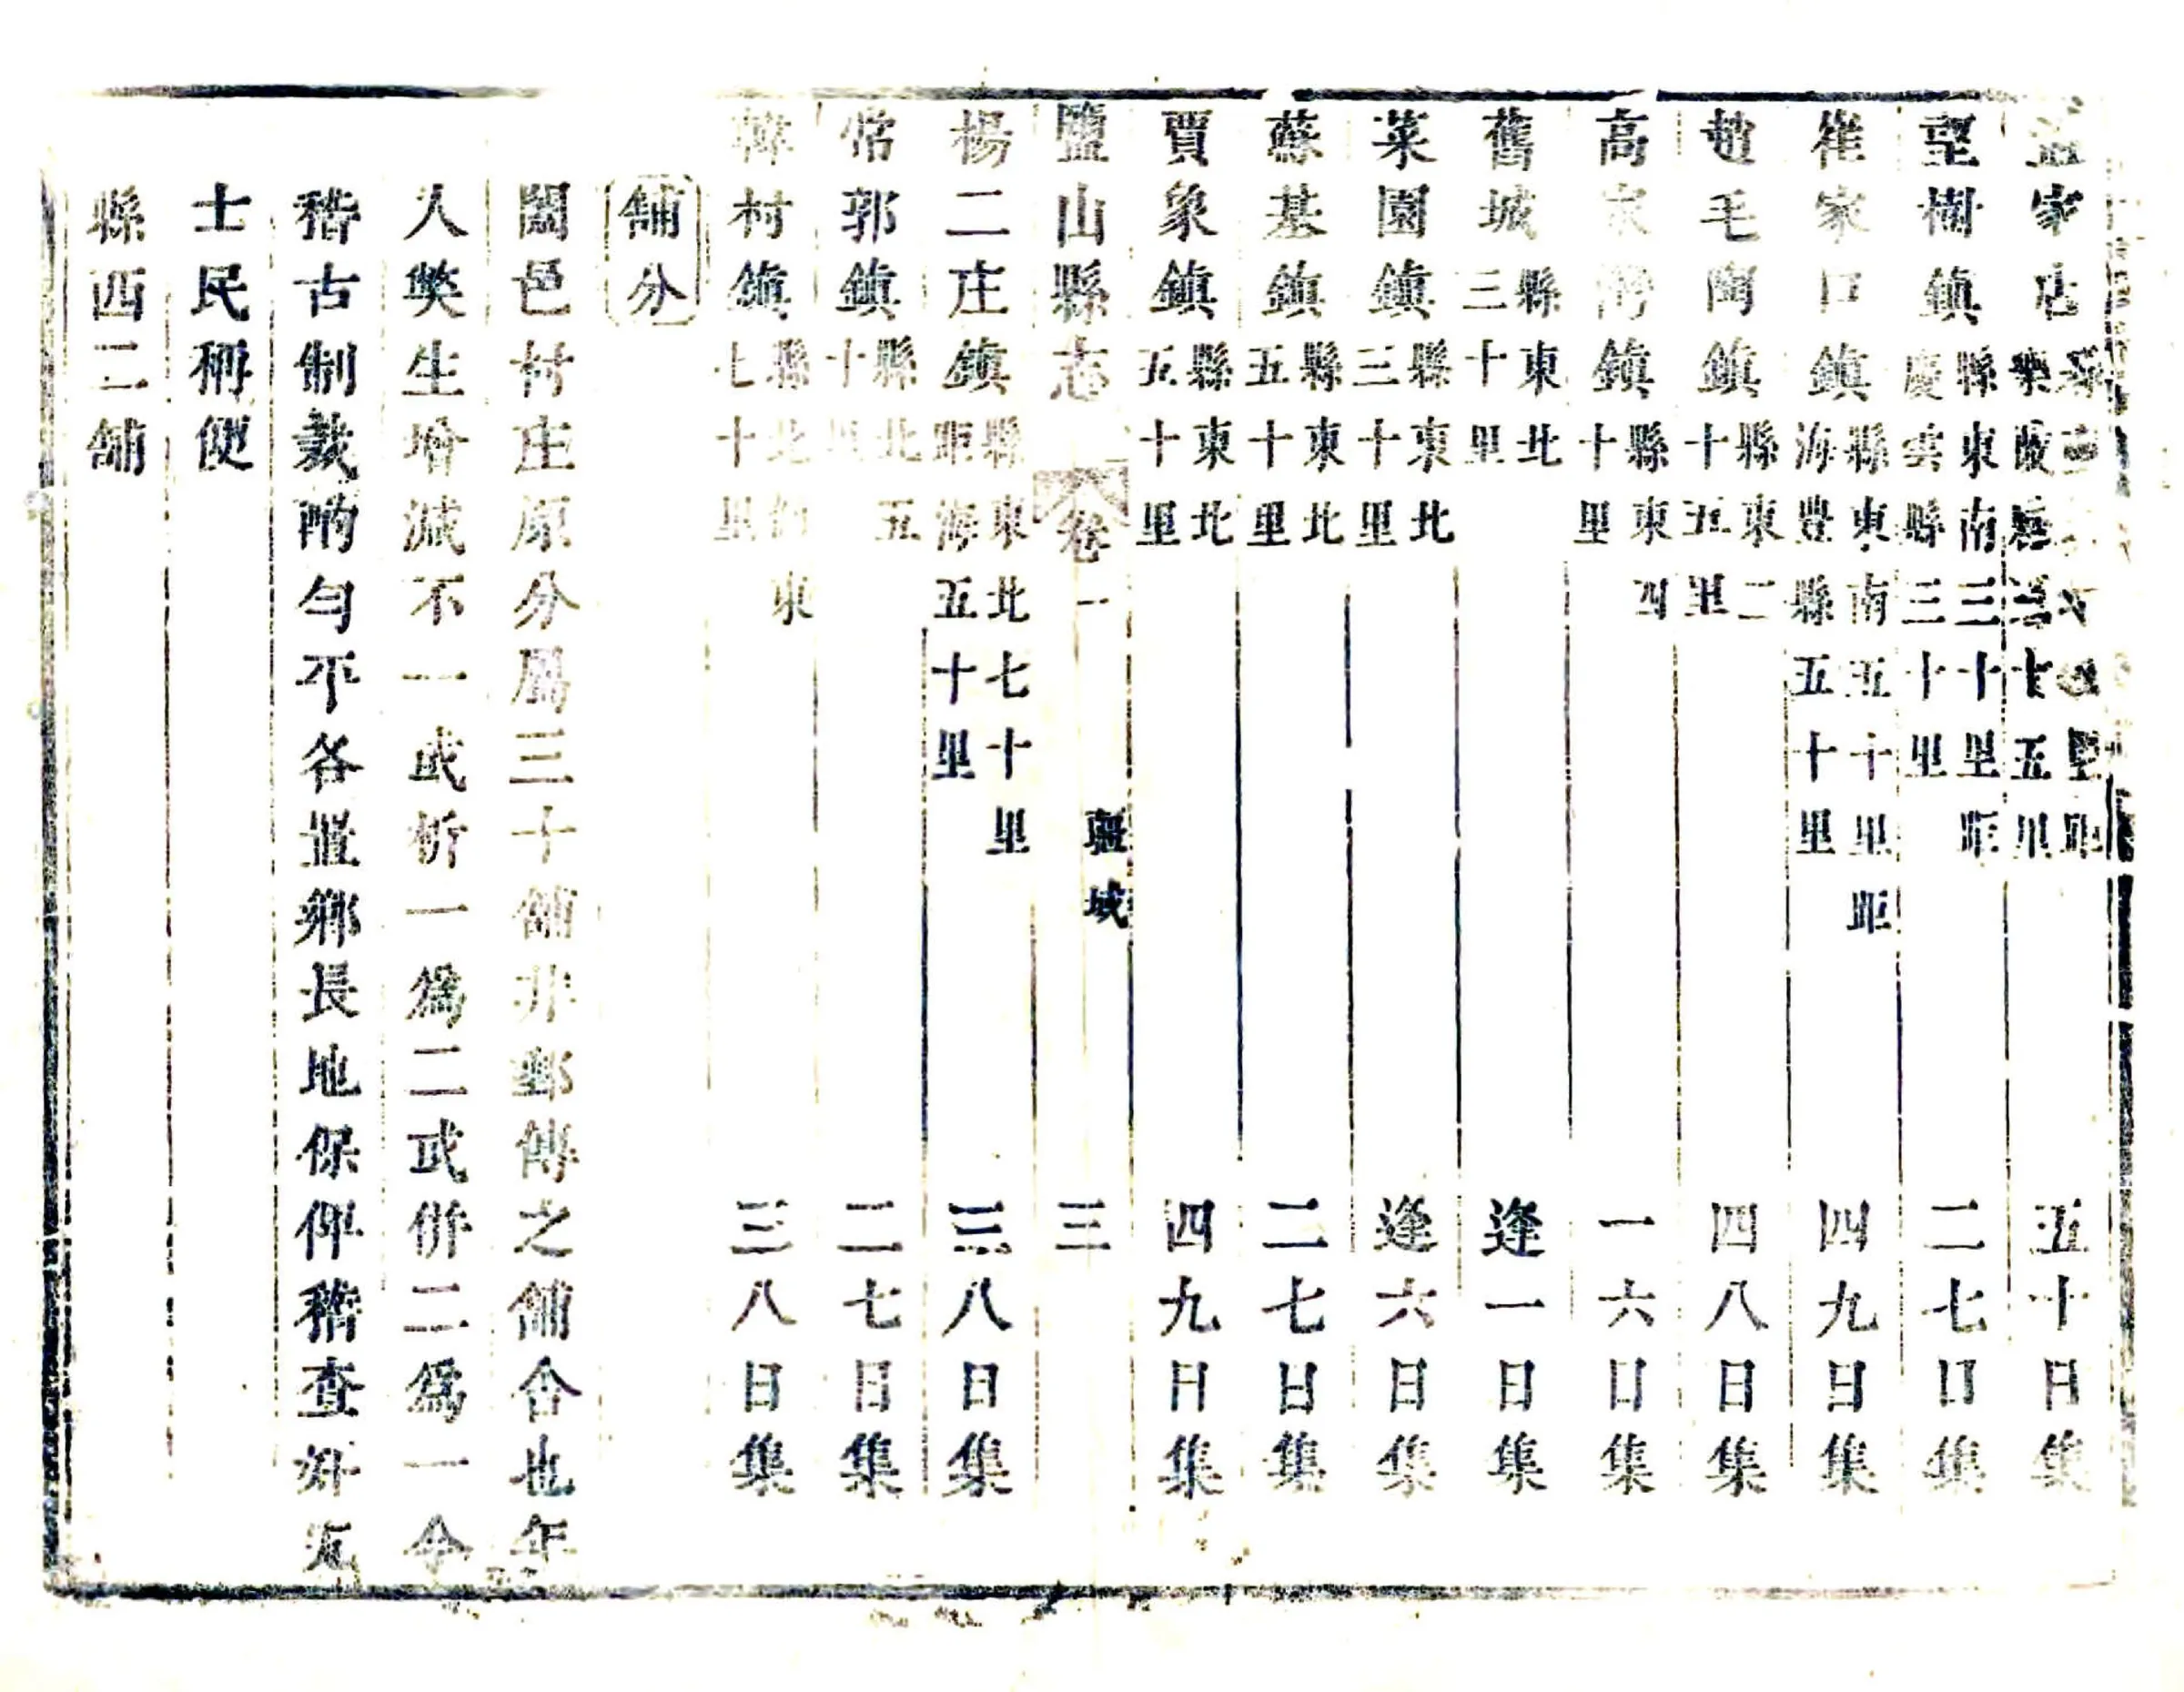 家店樂陵縣 十五里距 五十日集
望樹鎮縣東南三十里距慶雲縣三十里 二七日集
崔家口鎮縣東南五十里距海豐縣五十里 四九日集
趙毛陶鎮縣東二十五里 四八日集
高家灣鎮縣東四十里 一六日集
舊城縣東北三十里 逢一日集
菜園鎮縣東北三十里 逢六日集
蘇基鎮縣東北五十里 二七日集
賈象鎮縣東北五十里 四九日集
鹽山縣志 卷一 疆域 三
楊二庄鎮縣東北七十里距海五十里 三八日集
常郭鎮縣北五十里 二七日集
韓村鎮縣北少東七十里 三八日集
舖分
闔邑村庄原分屬三十舖非郵傳之舖舍也年
人獘生增減不一或析一爲二或併二爲一今
稽古制裁酌勻平各置鄉長地保俾稽查奸宄
士民稱便
縣西二舖